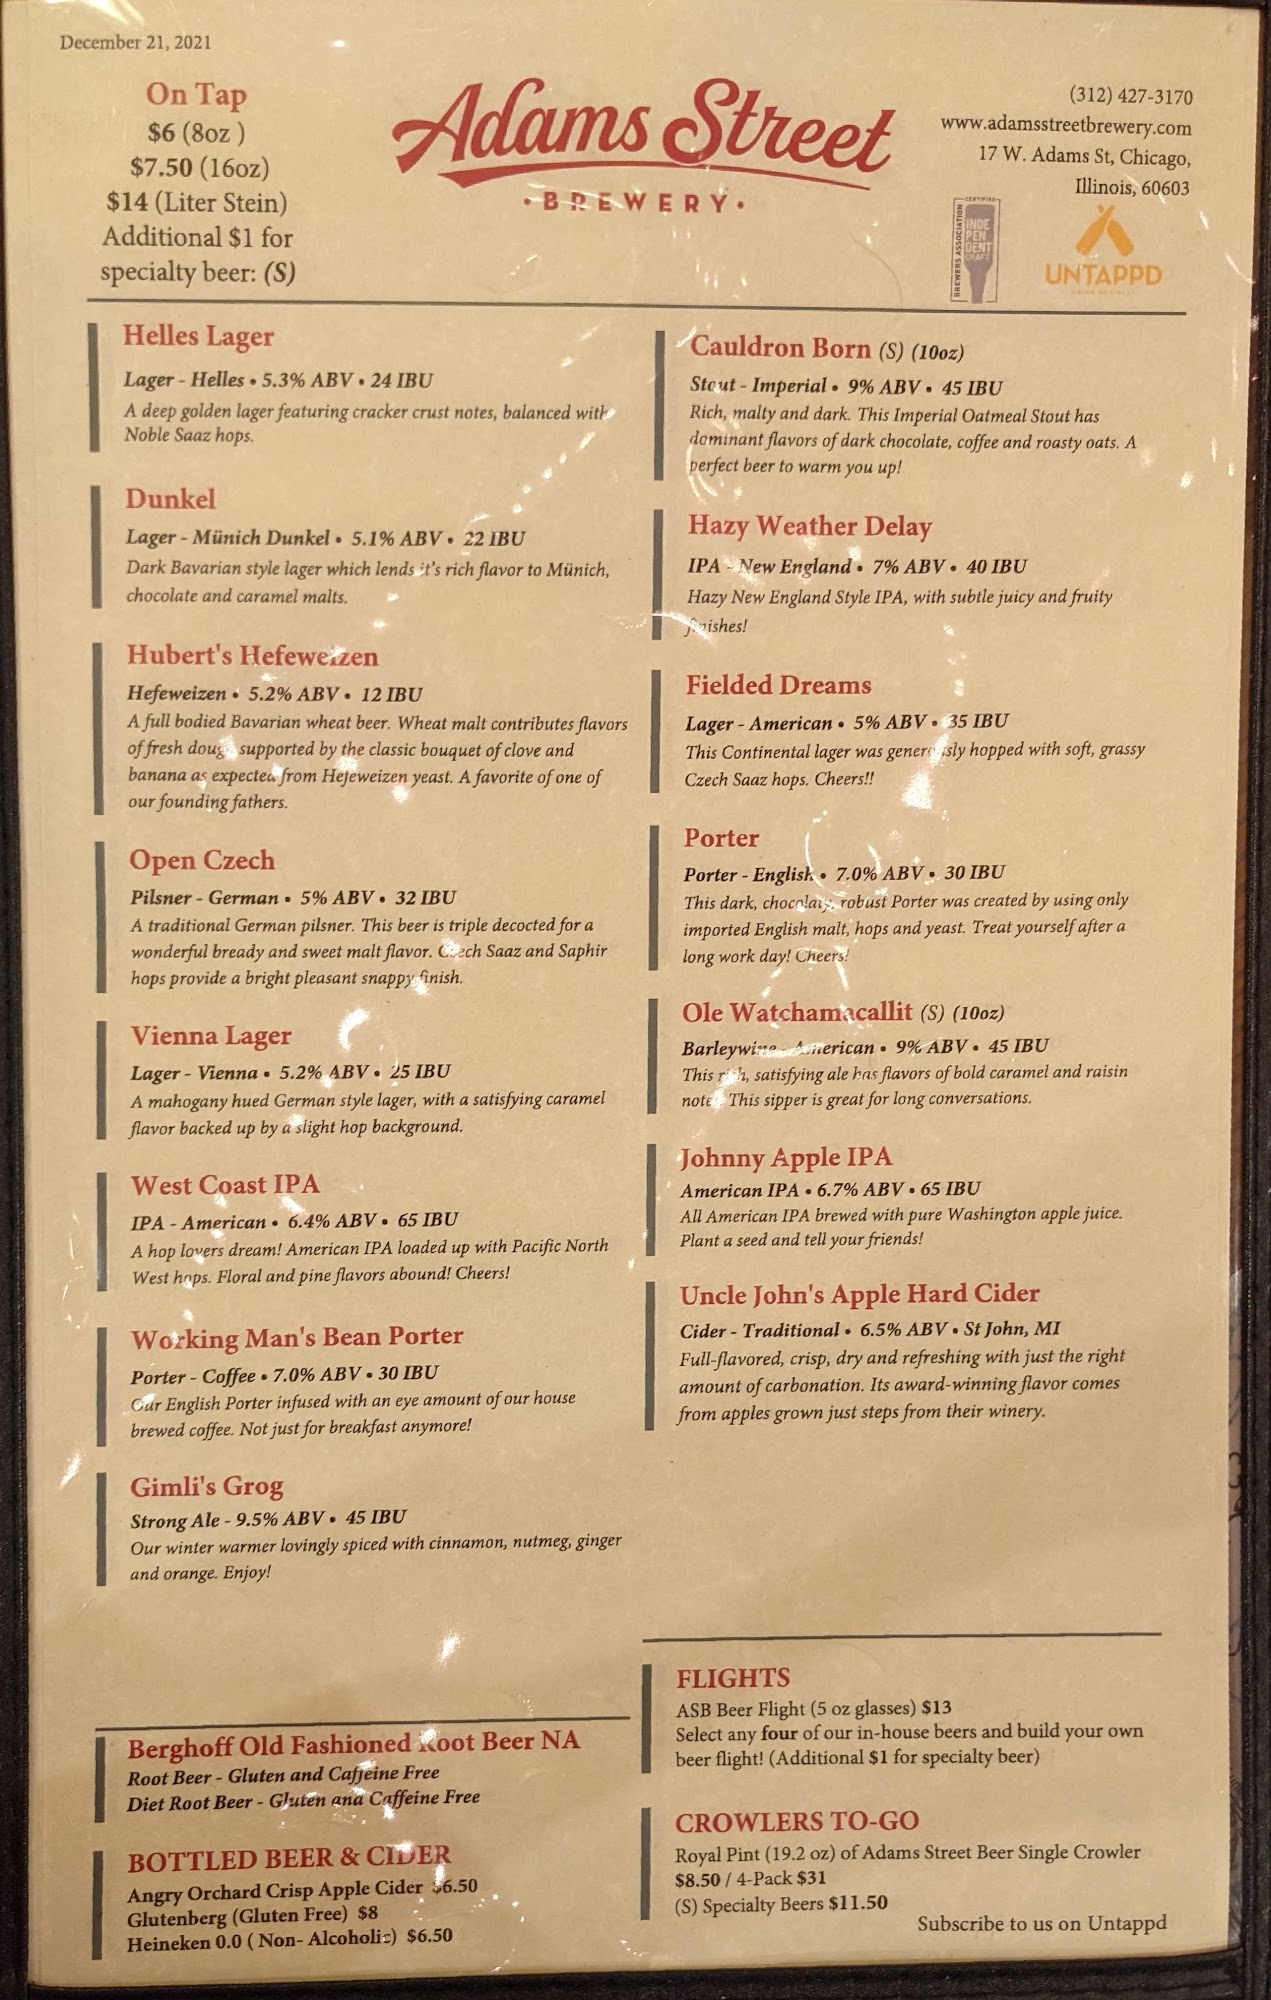 December 21, 2021
On Tap
$6 (8oz )
$7.50 (16oz)
$14 (Liter Stein)
Additional $1 for
specialty beer: (S)
Adams Street
• BREWERY •
(312) 427-3170
www.adamsstreetbrewery.com
17 W. Adams St, Chicago,
Illinois, 60603
CERTIFIED
BREWERS ASSOCIATION
INDE
PEN
DENT
CRAFT
UNTAPPD
Helles Lager
Lager - Helles • 5.3% ABV • 24 IBU
A deep golden lager featuring cracker crust notes, balanced with
Noble Saaz hops.
Dunkel
Lager - Münich Dunkel • 5.1% ABV • 22 IBU
Dark Bavarian style lager which lends it's rich flavor to Münich,
chocolate and caramel malts.
Hubert's Hefeweizen
Hefeweizen • 5.2% ABV • 12 IBU
A full bodied Bavarian wheat beer. Wheat malt contributes flavors
of fresh dough supported by the classic bouquet of clove and
banana as expected from Hefeweizen yeast. A favorite of one of
our founding fathers.
Open Czech
Pilsner - German • 5% ABV • 32 IBU
A traditional German pilsner. This beer is triple decocted for a
wonderful bready and sweet malt flavor. Czech Saaz and Saphir
hops provide a bright pleasant snappy finish.
Vienna Lager
Lager - Vienna • 5.2% ABV • 25 IBU
A mahogany hued German style lager, with a satisfying caramel
flavor backed up by a slight hop background.
West Coast IPA
IPA - American • 6.4% ABV • 65 IBU
A hop lovers dream! American IPA loaded up with Pacific North
West hops. Floral and pine flavors abound! Cheers!
Working Man's Bean Porter
Porter - Coffee • 7.0% ABV • 30 IBU
Our English Porter infused with an eye amount of our house
brewed coffee. Not just for breakfast anymore!
Gimli's Grog
Strong Ale - 9.5% ABV • 45 IBU
Our winter warmer lovingly spiced with cinnamon, nutmeg, ginger
and orange. Enjoy!
Berghoff Old Fashioned Root Beer NA
Root Beer - Gluten and Caffeine Free
Diet Root Beer - Gluten and Caffeine Free
BOTTLED BEER & CIDER
Angry Orchard Crisp Apple Cider $6.50
Glutenberg (Gluten Free) $8
Heineken 0.0 ( Non- Alcoholic) $6.50
Cauldron Born (S) (10oz)
Stout - Imperial • 9% ABV • 45 IBU
Rich, malty and dark. This Imperial Oatmeal Stout has
dominant flavors of dark chocolate, coffee and roasty oats. A
perfect beer to warm you up!
Hazy Weather Delay
IPA - New England • 7% ABV • 40 IBU
Hazy New England Style IPA, with subtle juicy and fruity
finishes!
Fielded Dreams
Lager - American • 5% ABV • 35 IBU
This Continental lager was generously hopped with soft, grassy
Czech Saaz hops. Cheers!!
Porter
Porter - English • 7.0% ABV • 30 IBU
This dark, chocolaty, robust Porter was created by using only
imported English malt, hops and yeast. Treat yourself after a
long work day! Cheers!
Ole Watchamacallit (S) (10oz)
Barleywine - American • 9% ABV • 45 IBU
This rich, satisfying ale has flavors of bold caramel and raisin
notes. This sipper is great for long conversations.
Johnny Apple IPA
American IPA • 6.7% ABV • 65 IBU
All American IPA brewed with pure Washington apple juice.
Plant a seed and tell your friends!
Uncle John's Apple Hard Cider
Cider - Traditional • 6.5% ABV • St John, MI
Full-flavored, crisp, dry and refreshing with just the right
amount of carbonation. Its award-winning flavor comes
from apples grown just steps from their winery.
FLIGHTS
ASB Beer Flight (5 oz glasses) $13
Select any four of our in-house beers and build your own
beer flight! (Additional $1 for specialty beer)
CROWLERS TO-GO
Royal Pint (19.2 oz) of Adams Street Beer Single Crowler
$8.50 / 4-Pack $31
(S) Specialty Beers $11.50
Subscribe to us on Untappd